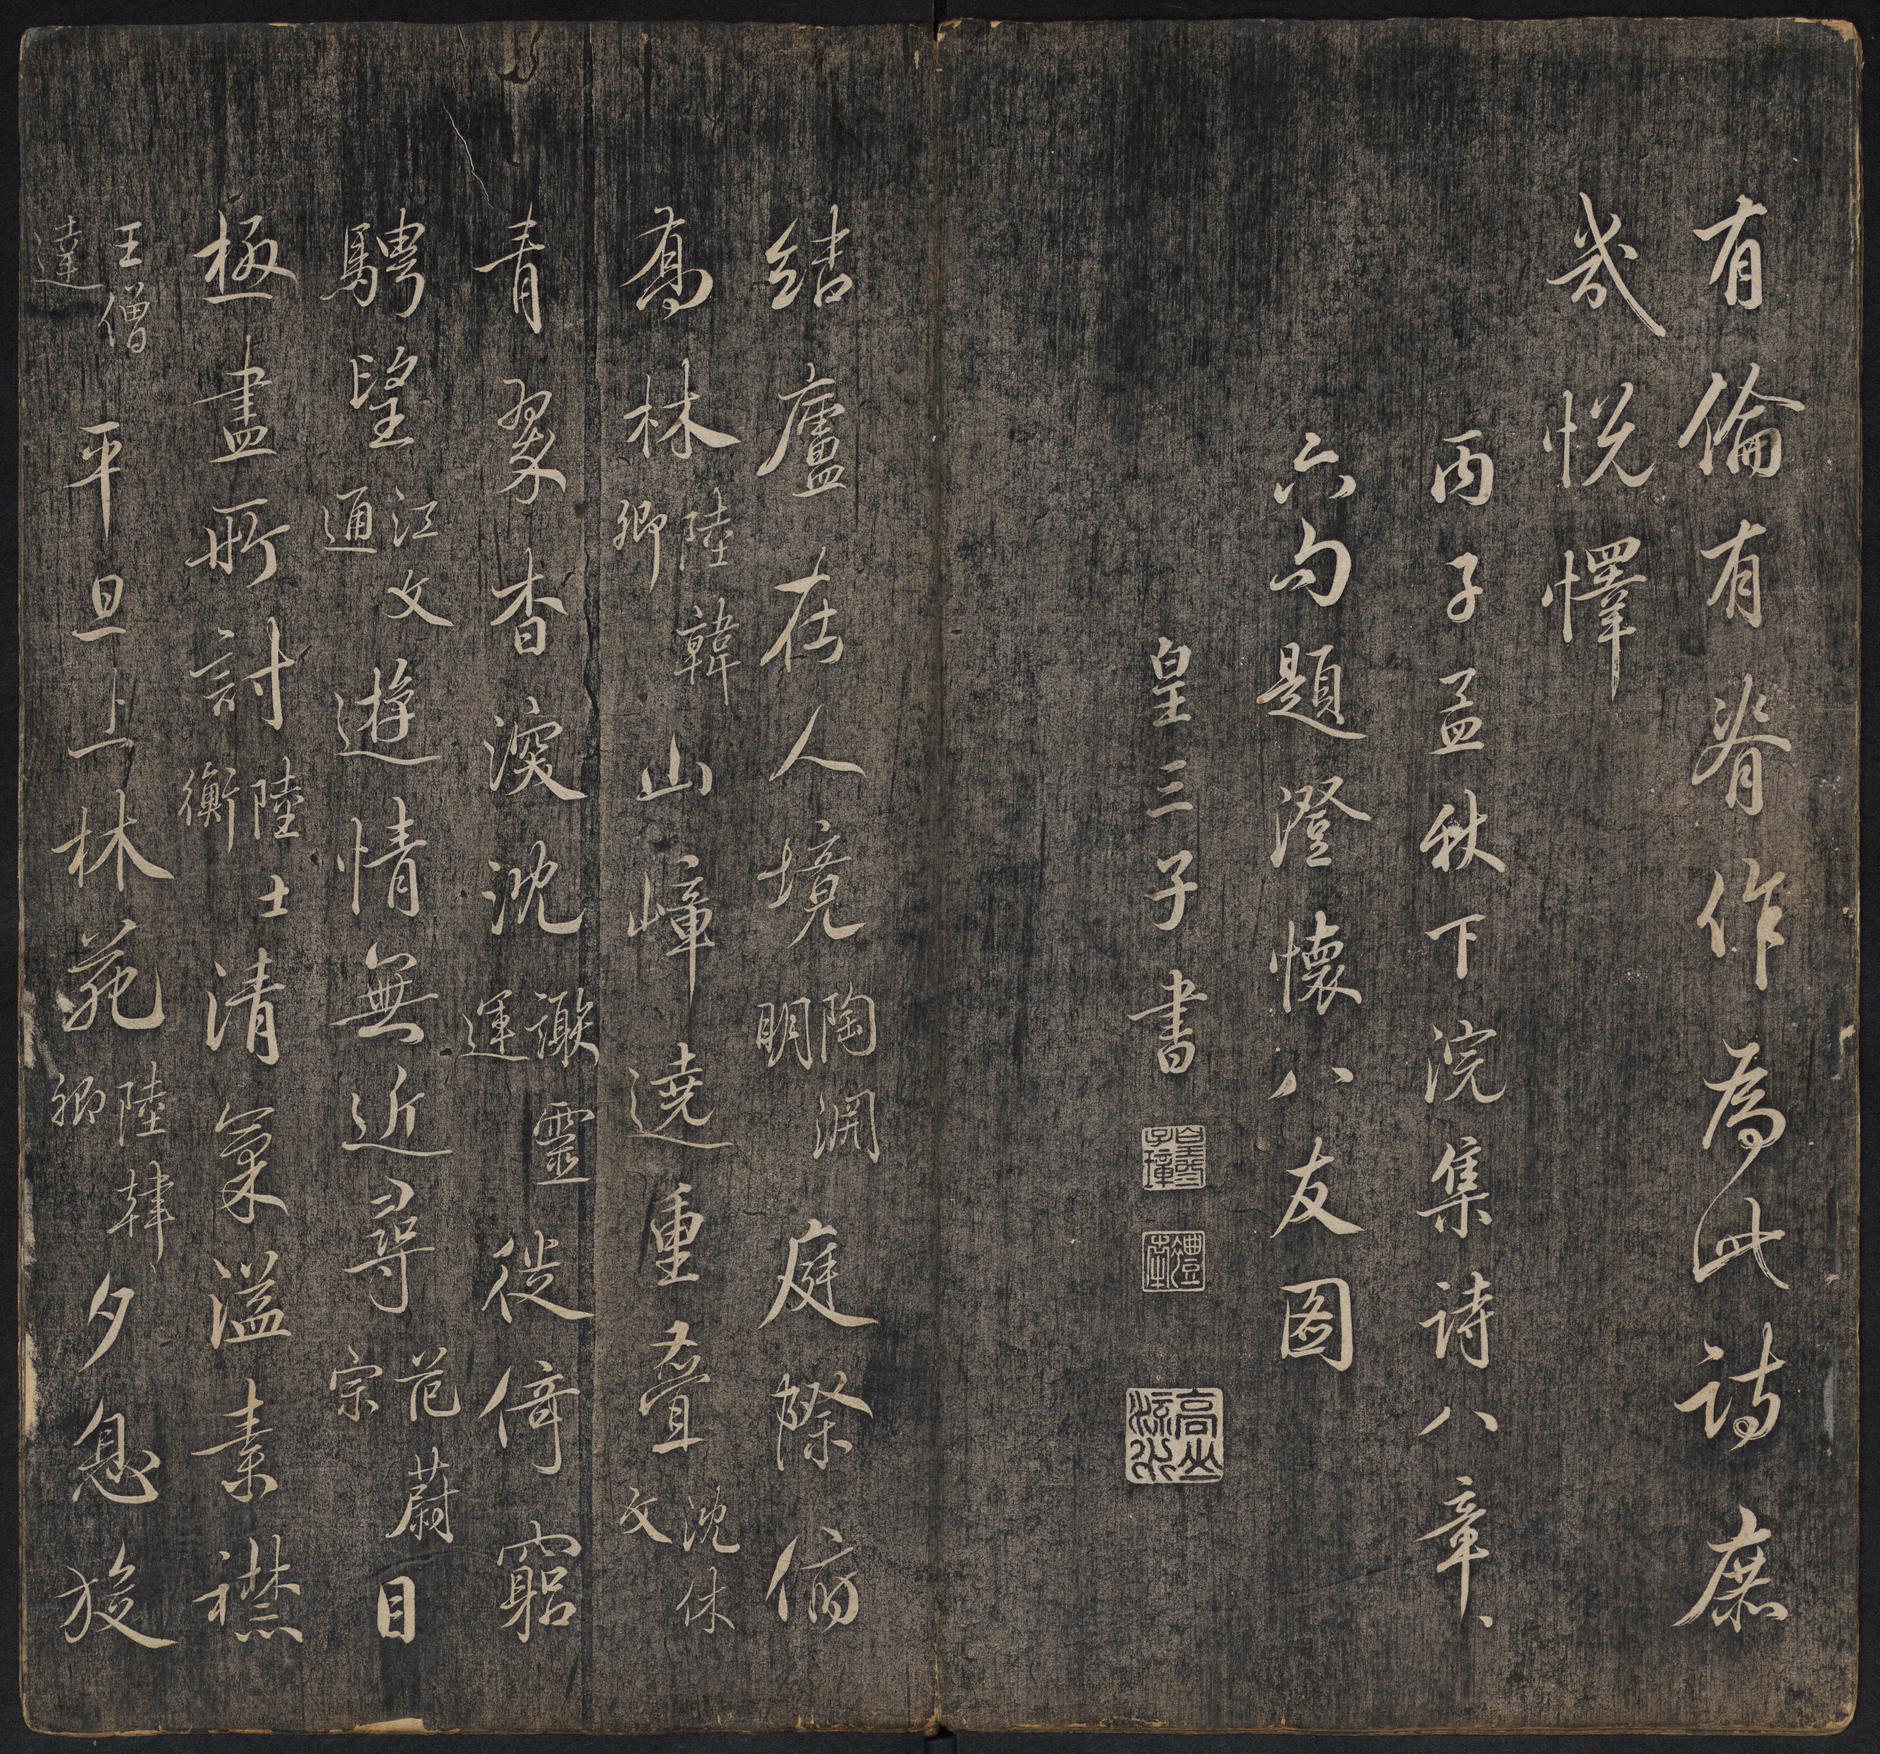 有倫有脊作為此詩庶
幾悅懌
丙子孟秋下浣集詩八章〻
六句題澄懷八友圖
皇三子書
高山流水
結廬在人境陶淵明庭際俯
喬林陸韓卿山嶂遶重疊沈休文
青翠杳深沈謝靈運徙倚窮
騁望江文通遊情無近尋范蔚宗目
極盡所討陸士衡清氣溢素襟
王僧達平旦上林苑陸韓卿夕息旋